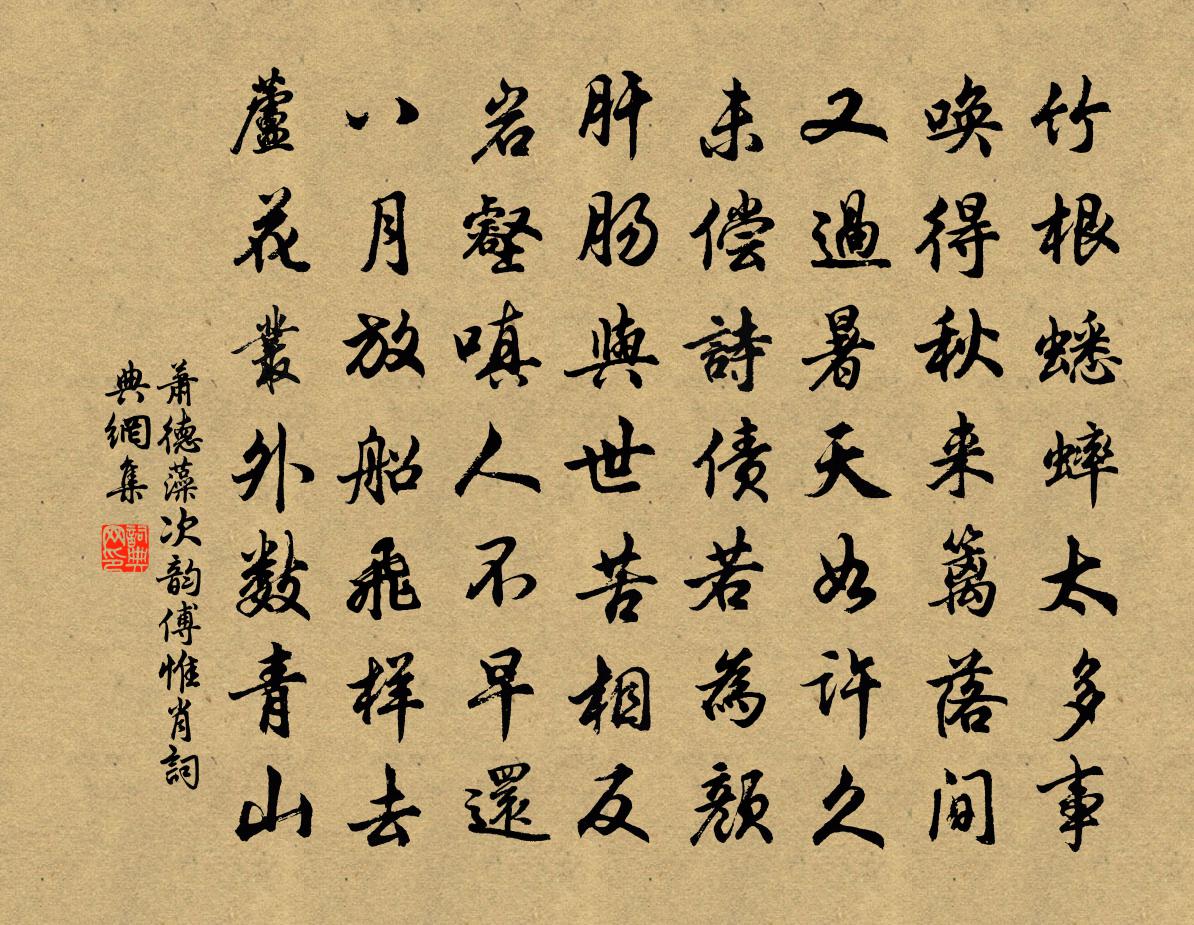 竹根蟋蟀太多事
喚得秋来篱落間
又過暑天如許久
未偿詩债若為顔
肝肠與世苦相反
岩壑嗔人不早還
八月放船飛样去
蘆花叢外数青山
萧德藻次韵傅惟肖詞
典網集
詞典网印